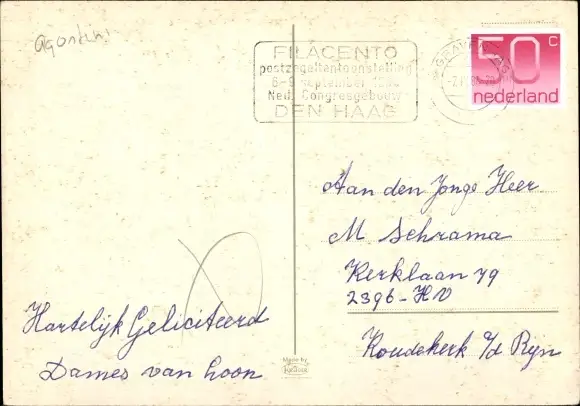 Agostini
FILACENTO
postzegeltentoonstelling
6-9 september 1984
Ned. Congresgebouw
DEN HAAG
50 c
nederland
Aan den Jonge Heer
M Schrama
Kerklaan 79
2396-HV
Koudekerk a/d Rijn
Hartelijk Geliciteerd
Dames van Loon
Made by